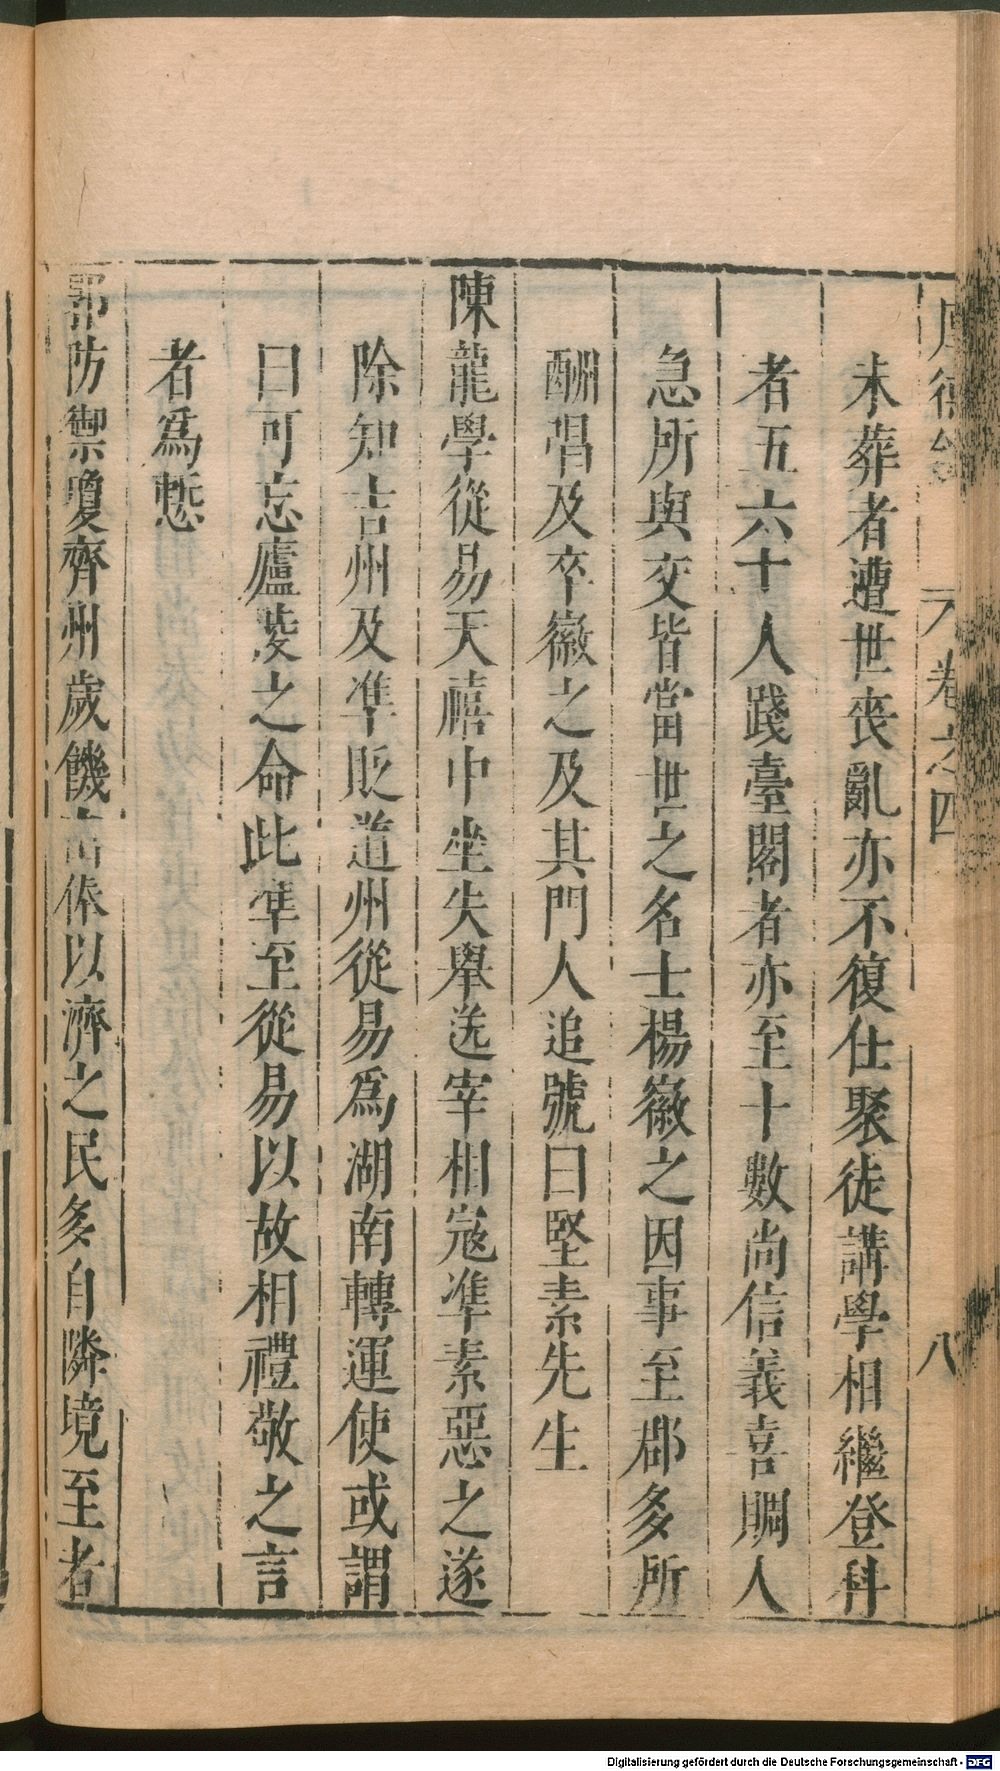 厚德錄 卷之四 八
未葬者遭世喪亂亦不復仕聚徒講學相繼登科
者五六十人踐臺閣者亦至十數尚信義喜賙人
急所與交皆當世之名士楊徽之因事至郡多所
酬唱及卒徽之及其門人追號曰堅素先生
陳龍學從易天禧中坐失舉送宰相寇準素惡之遂
除知吉州及準貶道州從易爲湖南轉運使或謂
曰可忘廬陵之命此準至從易以故相禮敬之言
者爲慙
郭防禦瓊齊州歲饑出俸以濟之民多自隣境至者
Digitalisierung gefördert durch die Deutsche Forschungsgemeinschaft - DFG